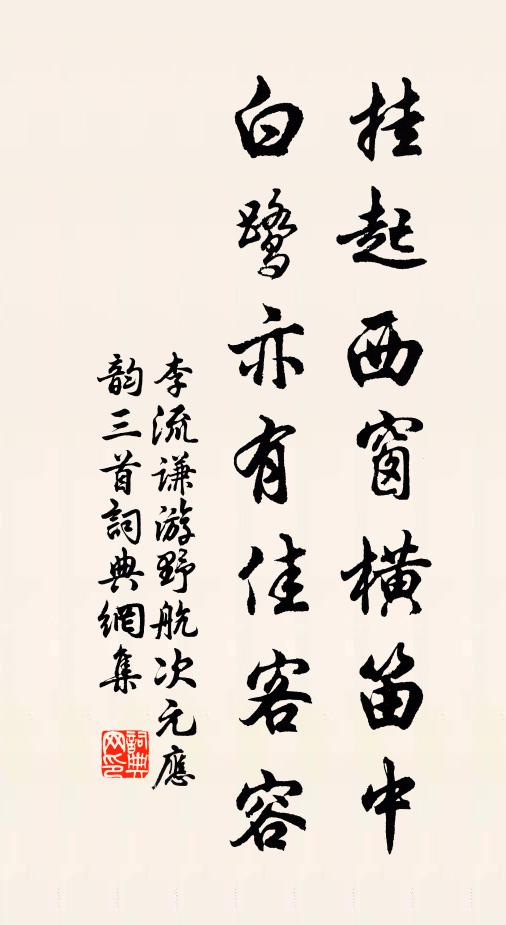 挂起西窗橫笛中
白鹭亦有佳客容
李流谦游野航次元應
韵三首詞典網集
詞典网印